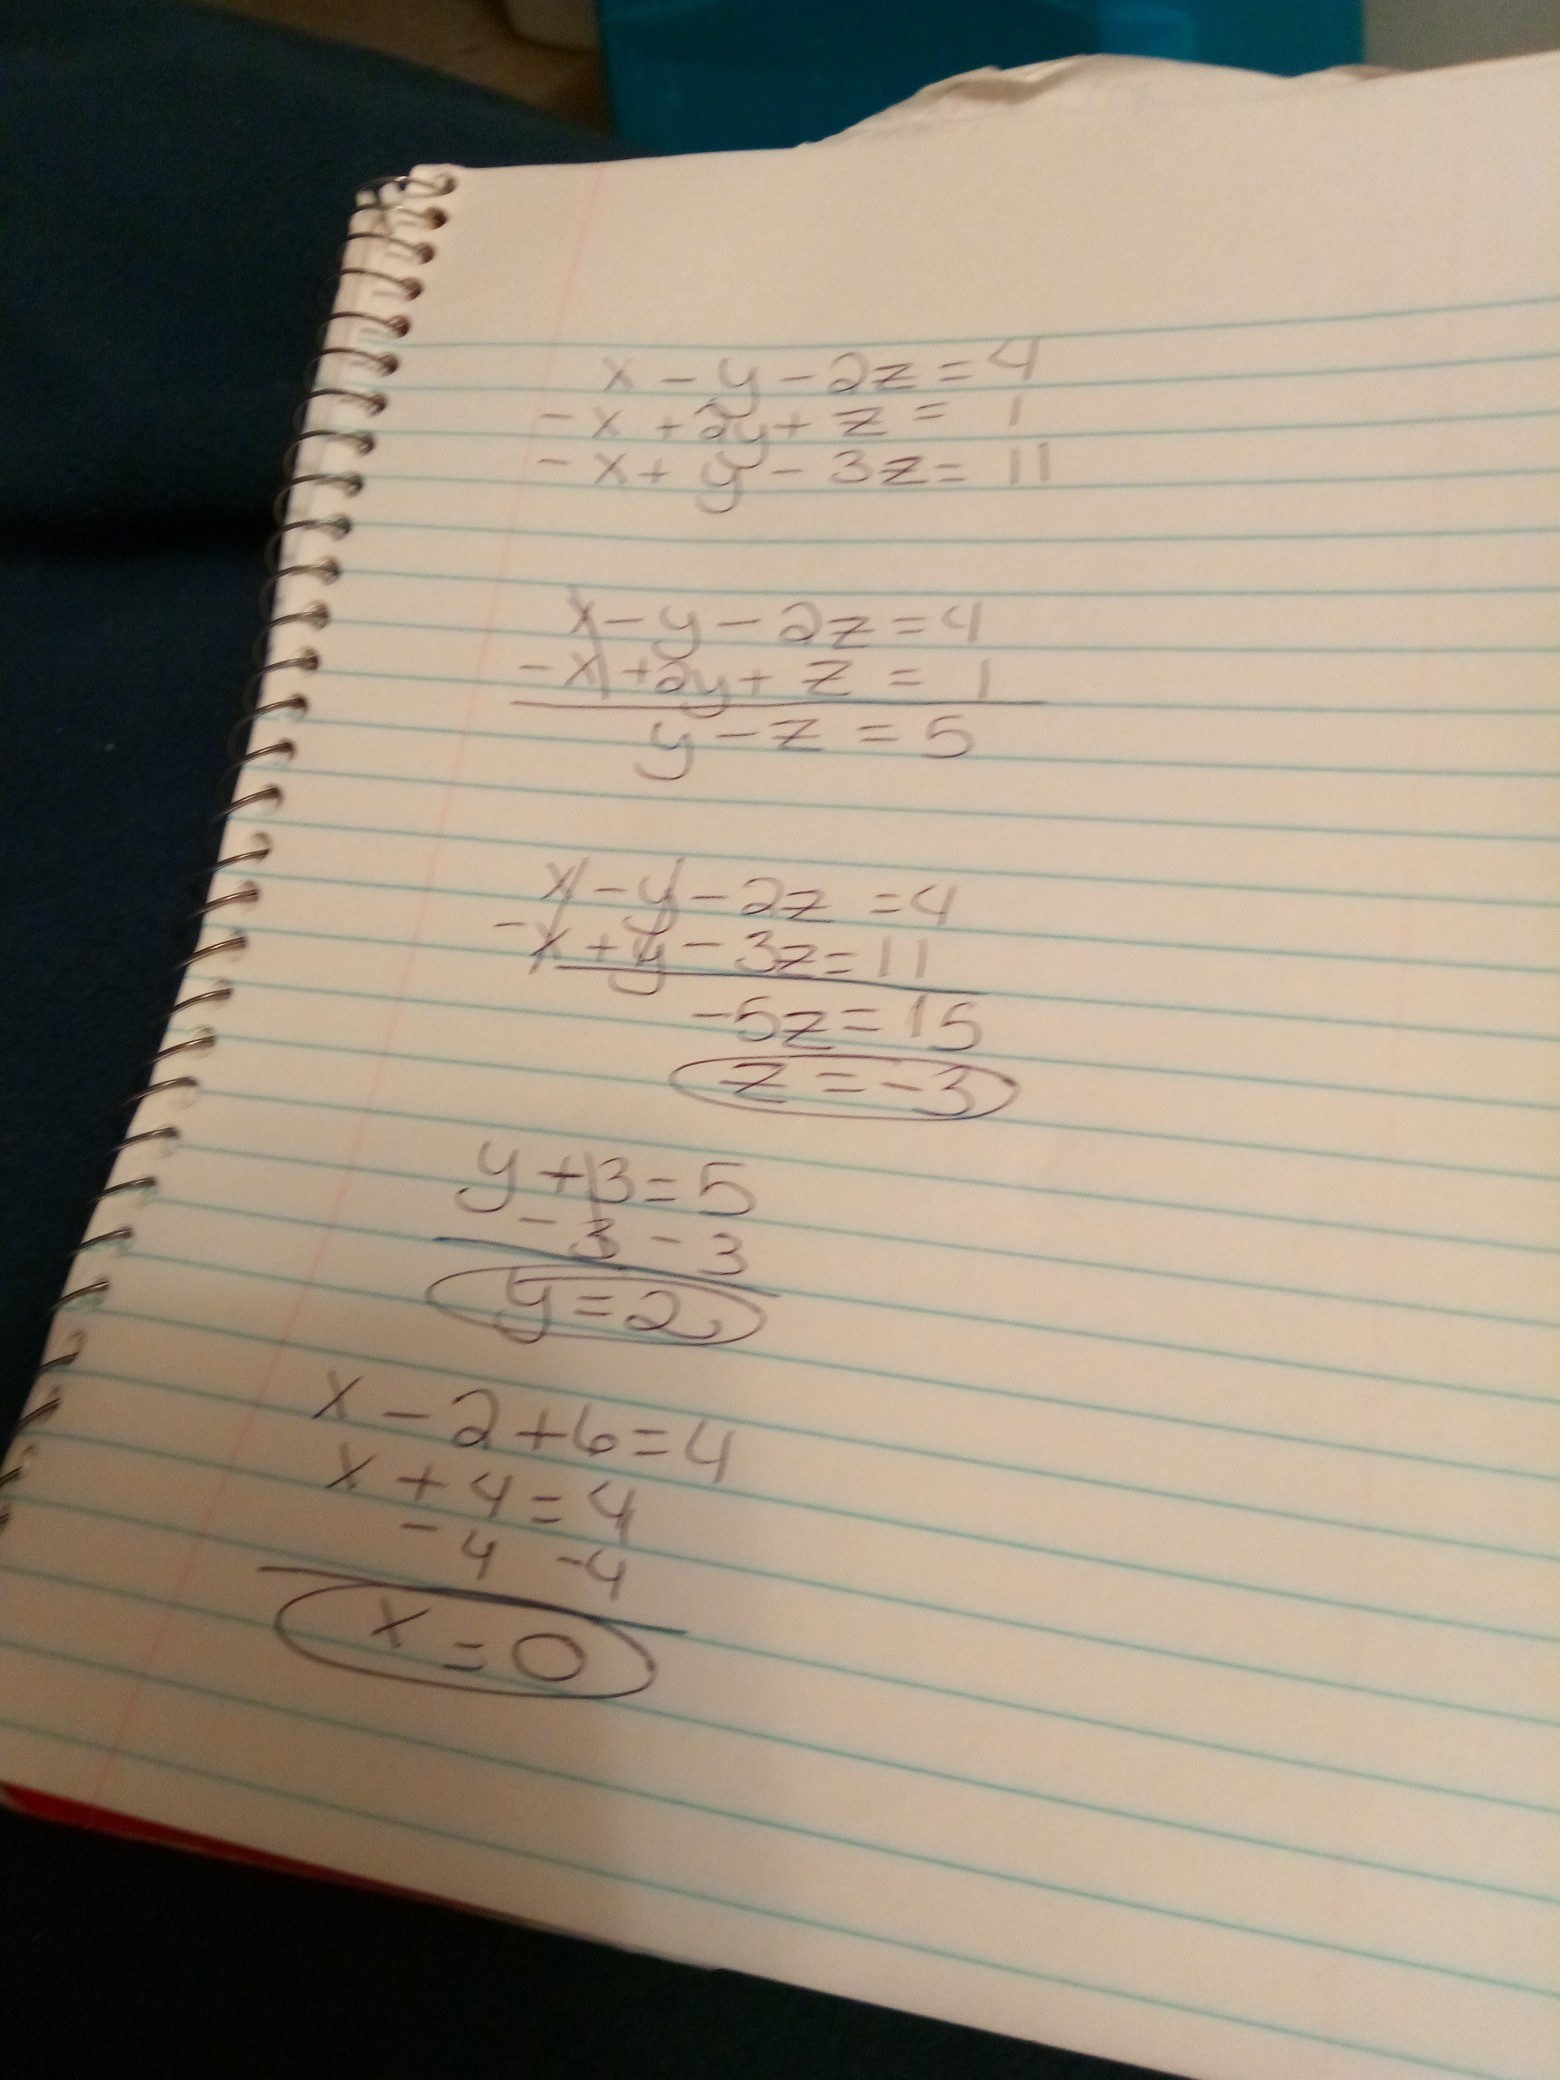 x - y - 2z = 4
-x + 2y + z = 1
-x + y - 3z = 11
x - y - 2z = 4
-x + 2y + z = 1
y - z = 5
x - y - 2z = 4
-x + y - 3z = 11
-5z = 15
z = -3
y + 3 = 5
- 3 - 3
y = 2
x - 2 + 6 = 4
x + 4 = 4
- 4 - 4
x = 0